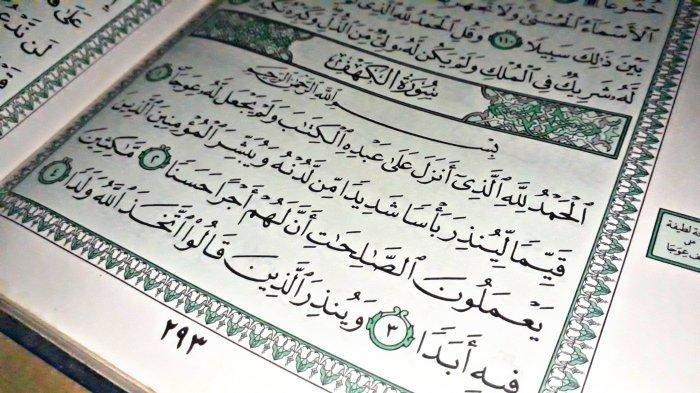 خُشُوعًا
ٱلْأَسْمَآءُ ٱلْحُسْنَىٰ وَلَا تَجْهَرْ
بَيْنَ ذَٰلِكَ سَبِيلًا ١١٠ وَقُلِ ٱلْحَمْدُ لِلَّهِ ٱلَّذِى
لَّهُۥ شَرِيكٌ فِى ٱلْمُلْكِ وَلَمْ يَكُن لَّهُۥ وَلِىٌّ مِّنَ ٱلذُّلِّ وَكَبِّرْهُ تَكْبِيرًا
سُورَةُ الكَهْفِ
بِسْمِ ٱللَّهِ ٱلرَّحْمَٰنِ ٱلرَّحِيمِ
ٱلْحَمْدُ لِلَّهِ ٱلَّذِىٓ أَنزَلَ عَلَىٰ عَبْدِهِ ٱلْكِتَٰبَ وَلَمْ يَجْعَل لَّهُۥ عِوَجًا ١
قَيِّمًا لِّيُنذِرَ بَأْسًا شَدِيدًا مِّن لَّدُنْهُ وَيُبَشِّرَ ٱلْمُؤْمِنِينَ ٱلَّذِينَ
يَعْمَلُونَ ٱلصَّٰلِحَٰتِ أَنَّ لَهُمْ أَجْرًا حَسَنًا ٢ مَّٰكِثِينَ
فِيهِ أَبَدًا ٣ وَيُنذِرَ ٱلَّذِينَ قَالُوا۟ ٱتَّخَذَ ٱللَّهُ وَلَدًا ٤
٢٩٣
لَن نَّدْعُ
لطيفة
عِوَجًا